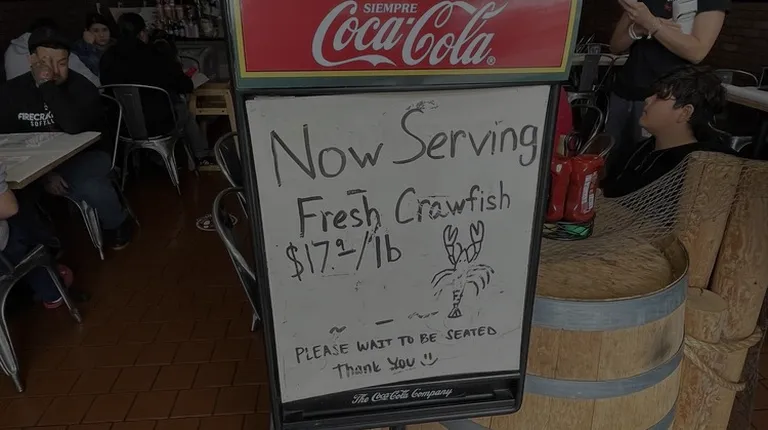 SIEMPRE
Coca-Cola
Now Serving
Fresh Crawfish
PLEASE WAIT TO BE SEATED
Thank You
The Coca-Cola Company